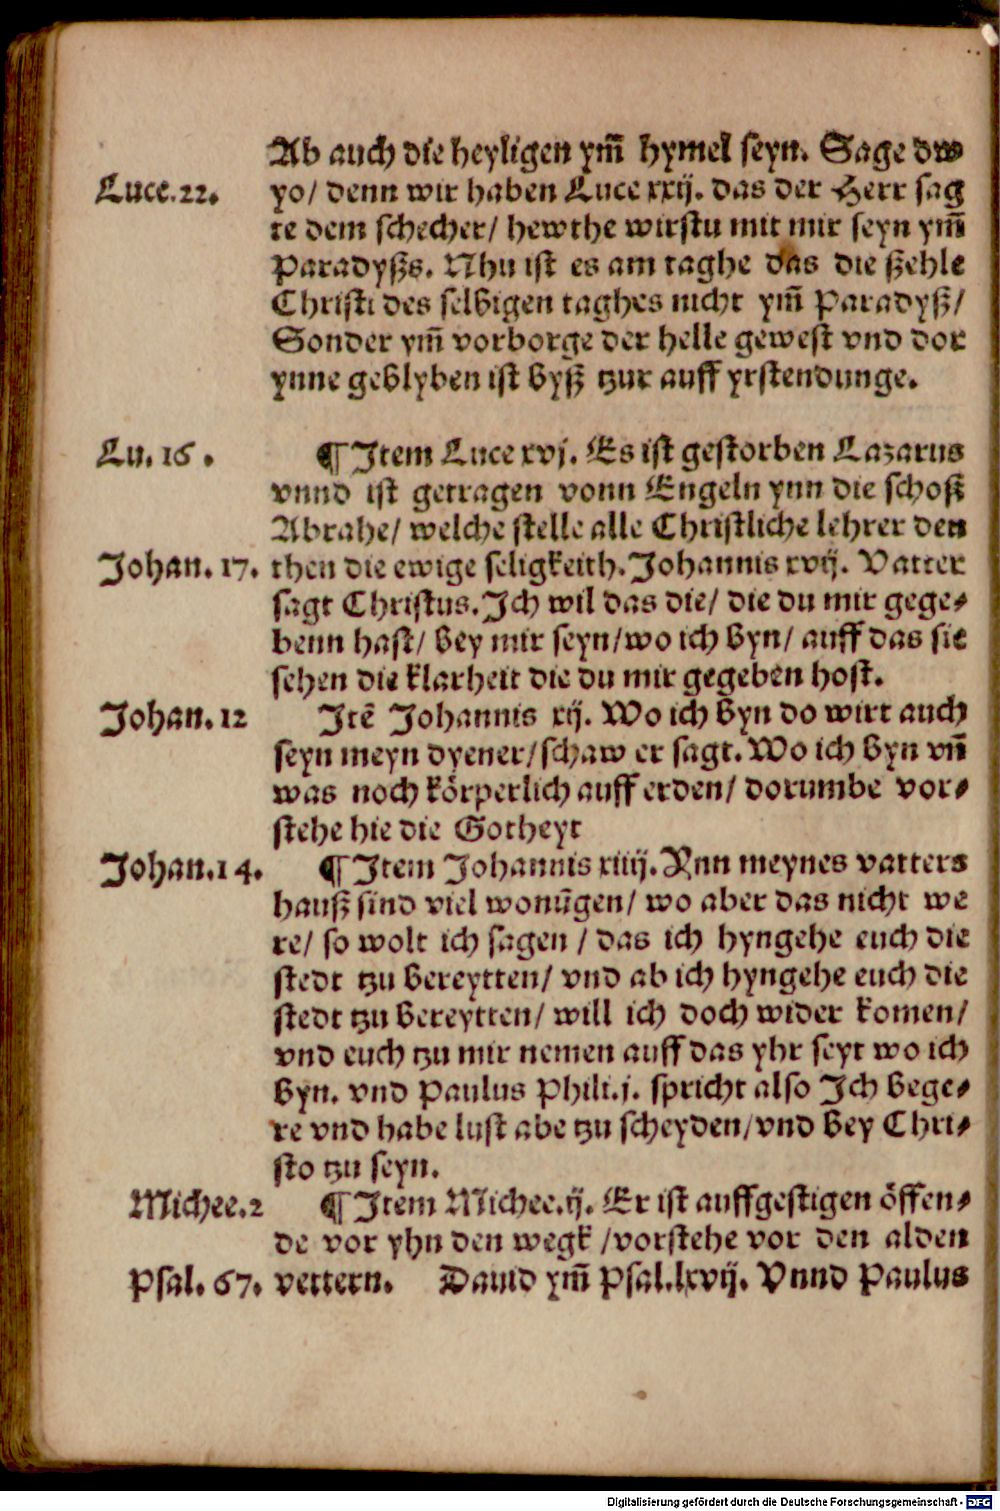 Ab auch die heyligen ym̃ hymel seyn. Sage dw
Luce.22. yo/ denn wir haben Luce xxij. das der Herr sag
te dem schecher/ hewthe wirstu mit mir seyn ym̃
Paradyßs. Nhu ist es am taghe das die ßehle
Christi des selbigen taghes nicht ym̃ Paradyß/
Sonder ym̃ vorborge der helle gewest vnd dor
ynne geblyben ist byß tzur auff yrstendunge.
Lu. 16. ¶ Item Luce xvj. Es ist gestorben Lazarus
vnnd ist getragen vonn Engeln ynn die schoß
Abrahe/ welche stelle alle Christliche lehrer den
Johan. 17. then die ewige seligkeith. Johannis xvij. Vatter
sagt Christus. Ich wil das die/ die du mir gege⸗
benn hast/ bey mir seyn/ wo ich byn/ auff das sie
sehen die klarheit die du mir gegeben host.
Johan. 12 Itē Johannis xij. Wo ich byn do wirt auch
seyn meyn dyener/ schaw er sagt. Wo ich byn vñ
was noch körperlich auff erden/ dorumbe vor⸗
stehe hie die Gotheyt
Johan.14. ¶ Item Johannis xiiij. Ynn meynes vatters
hauß sind viel wonūgen/ wo aber das nicht we
re/ so wolt ich sagen / das ich hyngehe euch die
stedt tzu bereytten/ vnd ab ich hyngehe euch die
stedt tzu bereytten/ will ich doch wider komen/
vnd euch tzu mir nemen auff das yhr seyt wo ich
byn. vnd Paulus Phili.j. spricht also Ich bege⸗
re vnd habe lust abe tzu scheyden/ vnd bey Chri⸗
sto tzu seyn.
Michee.2 ¶ Item Michee.ij. Er ist auffgestigen öffen⸗
de vor yhn den wegk /vorstehe vor den alden
Psal. 67. vettern. Dauid ym̃ Psal.lxvij. Vnnd Paulus
Digitalisierung gefördert durch die Deutsche Forschungsgemeinschaft - DFG